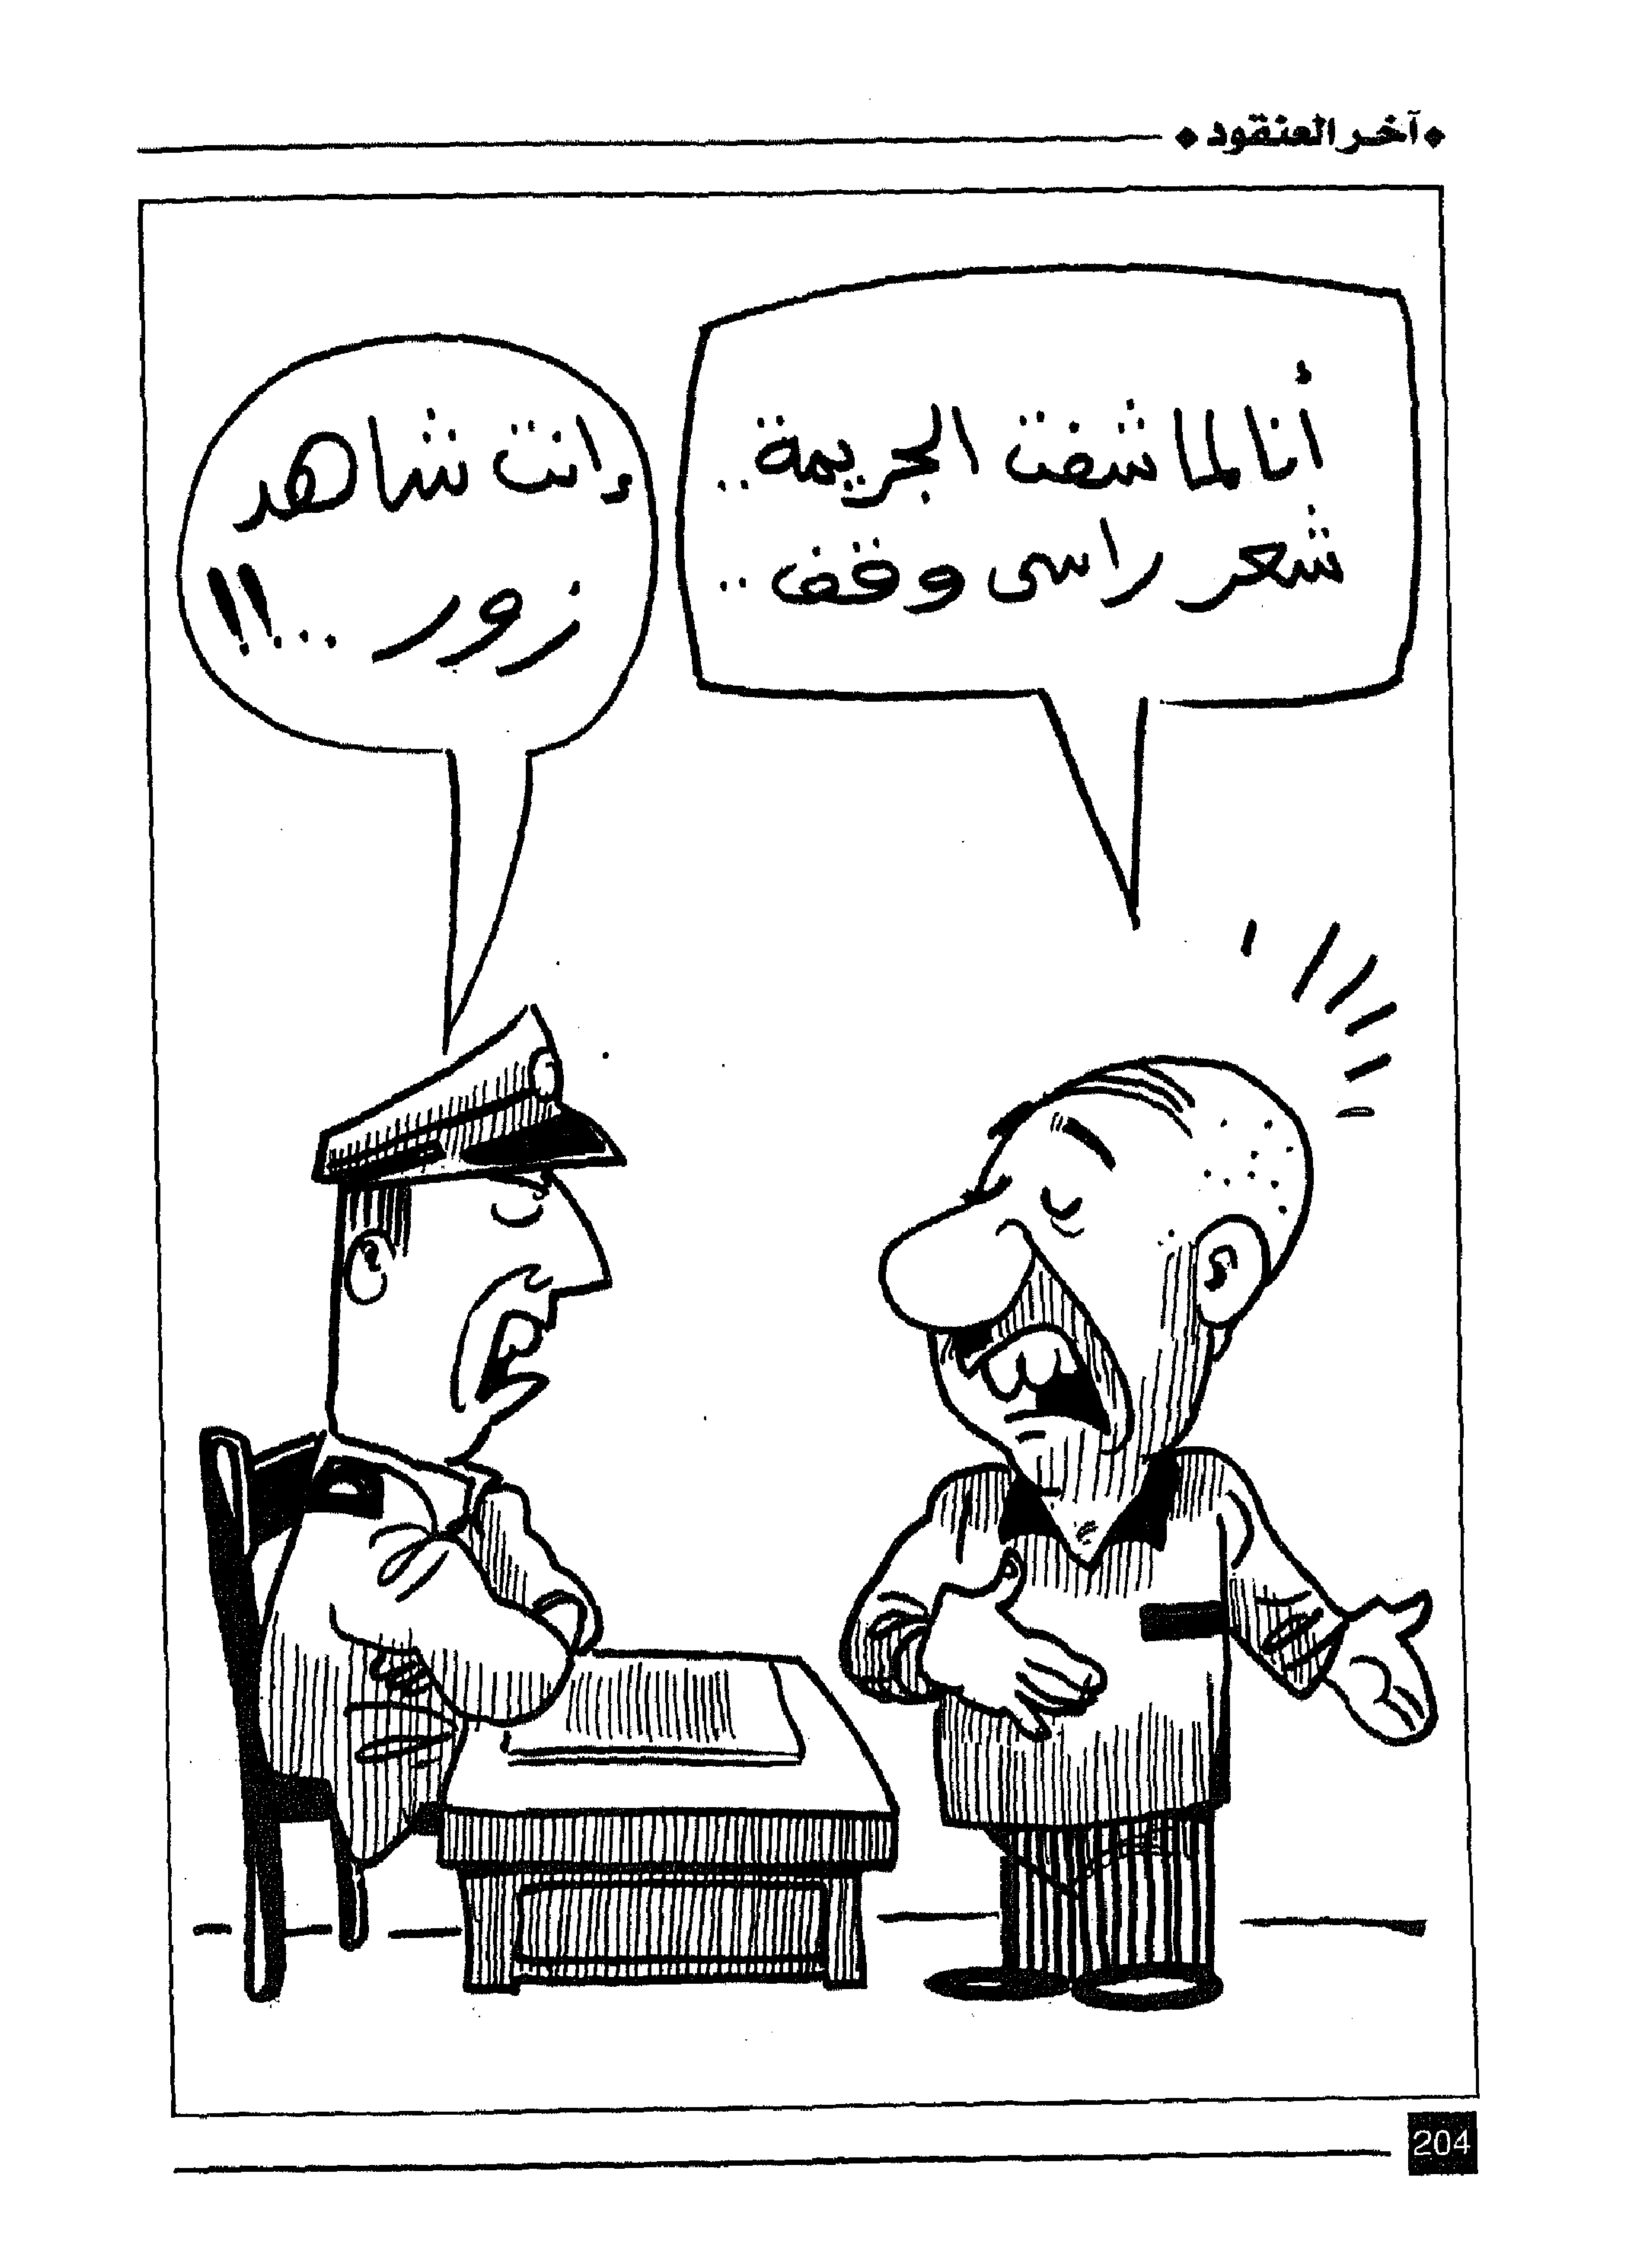 آخر العنقود
أنا لما شفت الجريمة..
شعر راسى وقف..
إنت شاهد
زور ...!!
204